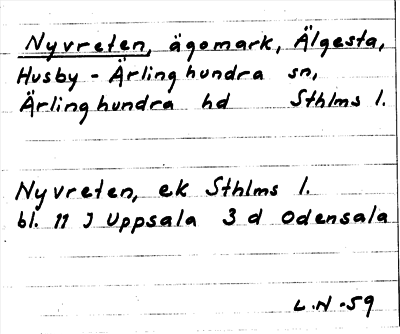 Nyvreten, ägomark, Älgesta,
Husby - Ärlinghundra sn,
Ärlinghundra hd Sthlms l.
Nyvreten, ek Sthlms l.
bl. 11 J Uppsala 3 d Odensala
L.N -59